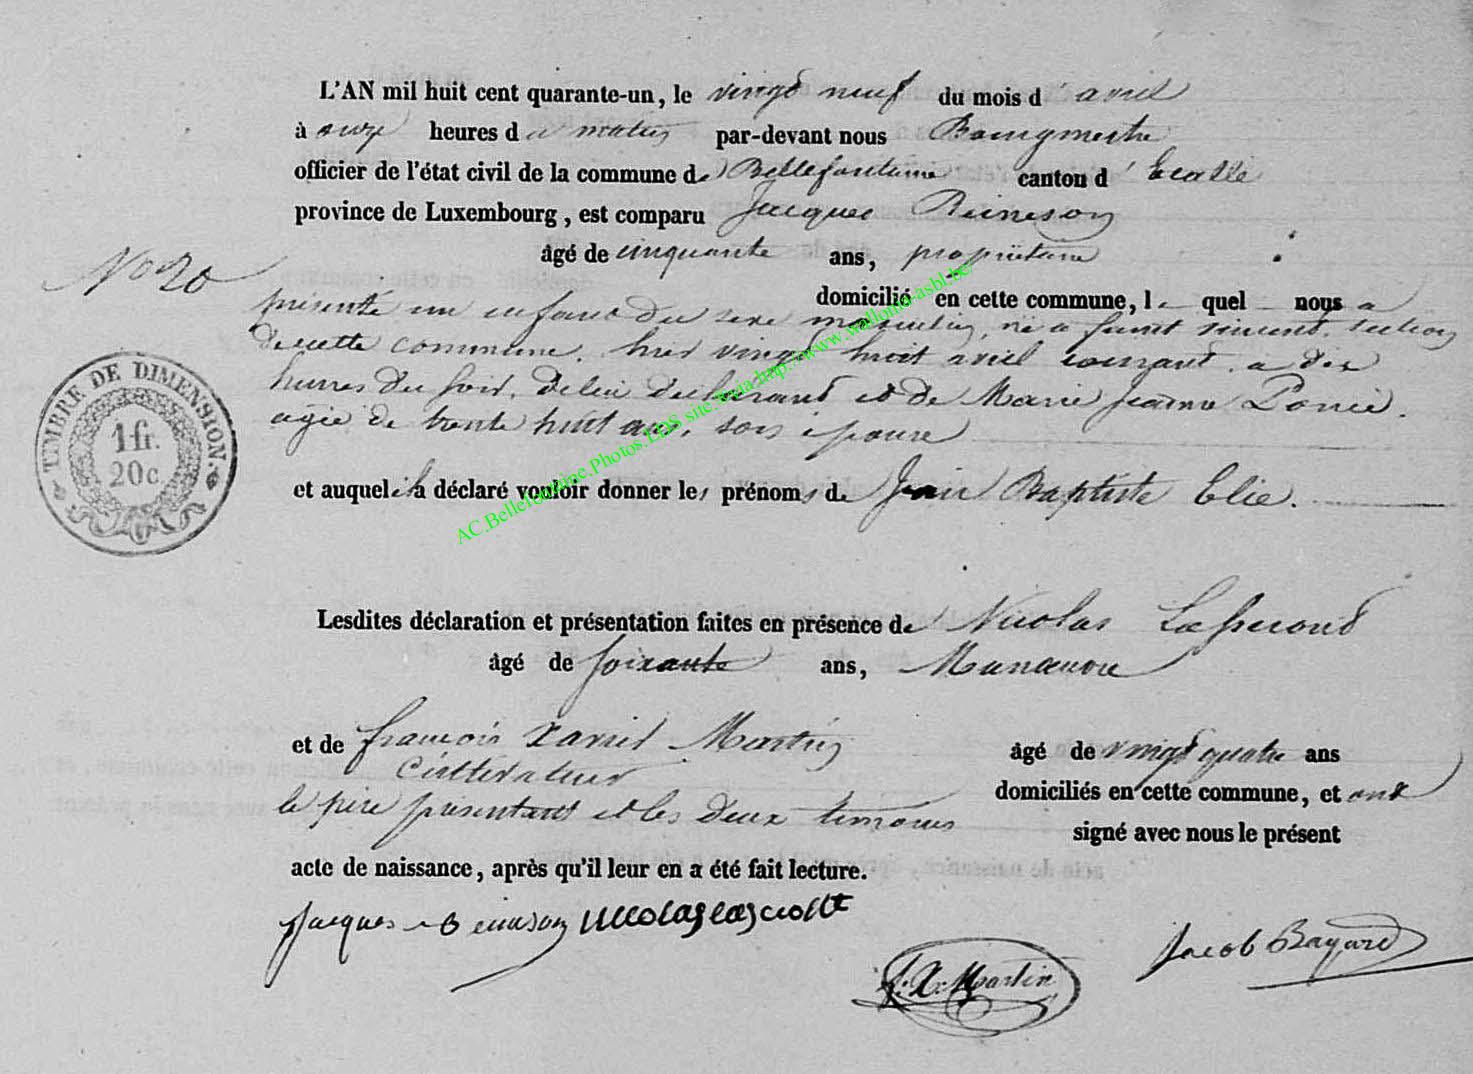 L'AN mil huit cent quarante-un, le vingt neuf du mois d'avril
à onze heures du matin par-devant nous Bourgmestre
officier de l'état civil de la commune de Bellefontaine canton d'Etalle
province de Luxembourg, est comparu Jacques
âgé de cinquante ans, propriétaire
No 20
domicilié en cette commune, lequel nous a
présenté un enfant du sexe masculin, né a saint vincent, section
de cette commune, hier vingt huit avril courant, a dix
heures du soir, de lui déclarant et de Marie Jeanne
agée de trente huit ans, son épouse
TIMBRE DE DIMENSION
1 fr.
20c
et auquel il a déclaré vouloir donner les prénoms de Jean Baptiste Elie.
AC.Bellefontaine.Photos.LDS site & via http://www.wallonia-asbl.be/
Lesdites déclaration et présentation faites en présence de Nicolas
âgé de soixante ans, Manœuvre
et de françois Xavier Martin âgé de vingt quatre ans
Cultivateur domiciliés en cette commune, et ont
le père présentant et les deux temoins signé avec nous le présent
acte de naissance, après qu'il leur en a été fait lecture.
Jacques nicolas
F. X. Martin
Jacob Bayard